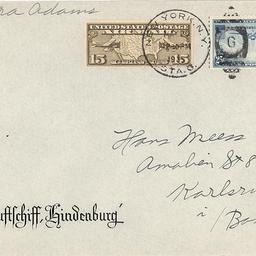 ra Adams
UNITED STATES POSTAGE
AIR MAIL
15 15
NEW YORK, N.Y.
STA. G.
G
Hans Meess
Karlsr
i/Ba
uftschiff „Hindenburg"